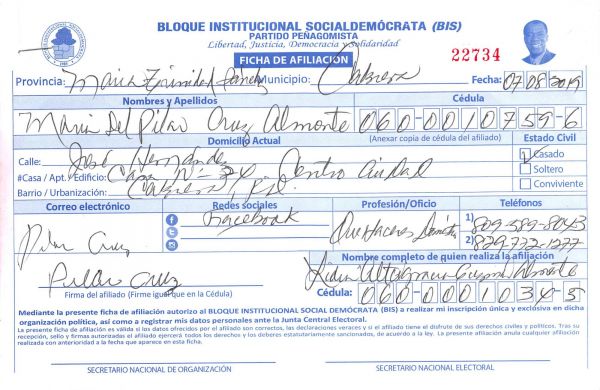 BLOQUE INSTITUCIONAL SOCIALDEMÓCRATA (BIS)
PARTIDO PEÑAGOMISTA
Libertad, Justicia, Democracia y Solidaridad
FICHA DE AFILIACIÓN
22734
Provincia: Maria Trinidad Sanchez Municipio: Cabrera Fecha: 07-08-2019
Nombres y Apellidos Cédula
Maria Del Pilar Cruz Almonte 060-0010759-6
Domicilio Actual (Anexar copia de cédula del afiliado) Estado Civil
Calle: José Hernandez Casado
#Casa / Apt. / Edificio: Casa Nº Centro Ciudad Soltero
Barrio / Urbanización: Cabrera, Conviviente
Correo electrónico Redes sociales Profesión/Oficio Teléfonos
Facebook 1) 809-589-8043
Pilar Cruz Que Haceres 2) 829-772-1277
Nombre completo de quien realiza la afiliación
Pilar Cruz Altagracia Almonte
Firma del afiliado (Firme igual que en la Cédula) Cédula: 060-0001034-5
Mediante la presente ficha de afiliación autorizo al BLOQUE INSTITUCIONAL SOCIAL DEMÓCRATA (BIS) a realizar mi inscripción única y exclusiva en dicha
organización política, así como a registrar mis datos personales ante la Junta Central Electoral.
La presente ficha de afiliación es válida si las datos ofrecidos por el afiliado son correctos, las declaraciones veraces y si el afiliado tiene el disfrute de sus derechos civiles y políticos. Tras su
recepción, sello y firmas autorizadas el afiliado ejercerá todos los derechos y los deberes estatutariamente sancionados, de acuerdo a la ley. La presente afiliación anula cualquier afiliación
realizada con anterioridad a la fecha que aparece en esta ficha.
SECRETARIO NACIONAL DE ORGANIZACIÓN SECRETARIO NACIONAL ELECTORAL